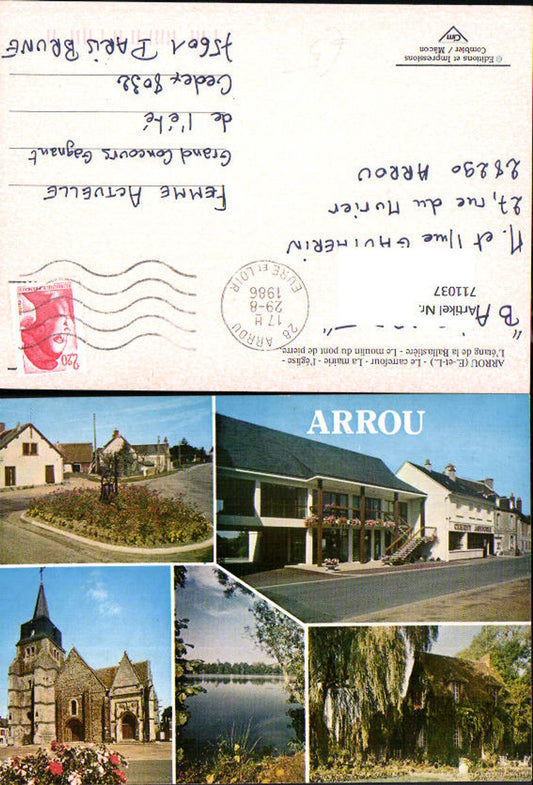 ARROU (E.-et-L.) - Le carrefour - La mairie - l'église -
L'étang de la Ballastière - Le moulin du pont de pierre
"BA
"
Artikel Nr.
711037
M. et Mme
27, rue du Murier
28290 ARROU
© Editions et Impressions
Combier / Mâcon
Cim
2,20
28 ARROU
17 H
29-8
1986
EURE ET LOIR
FEMME ACTUELLE
Grand Concours Gagnant
de l'été
Cedex 8032
75601 PARIS BRUNE
ARROU